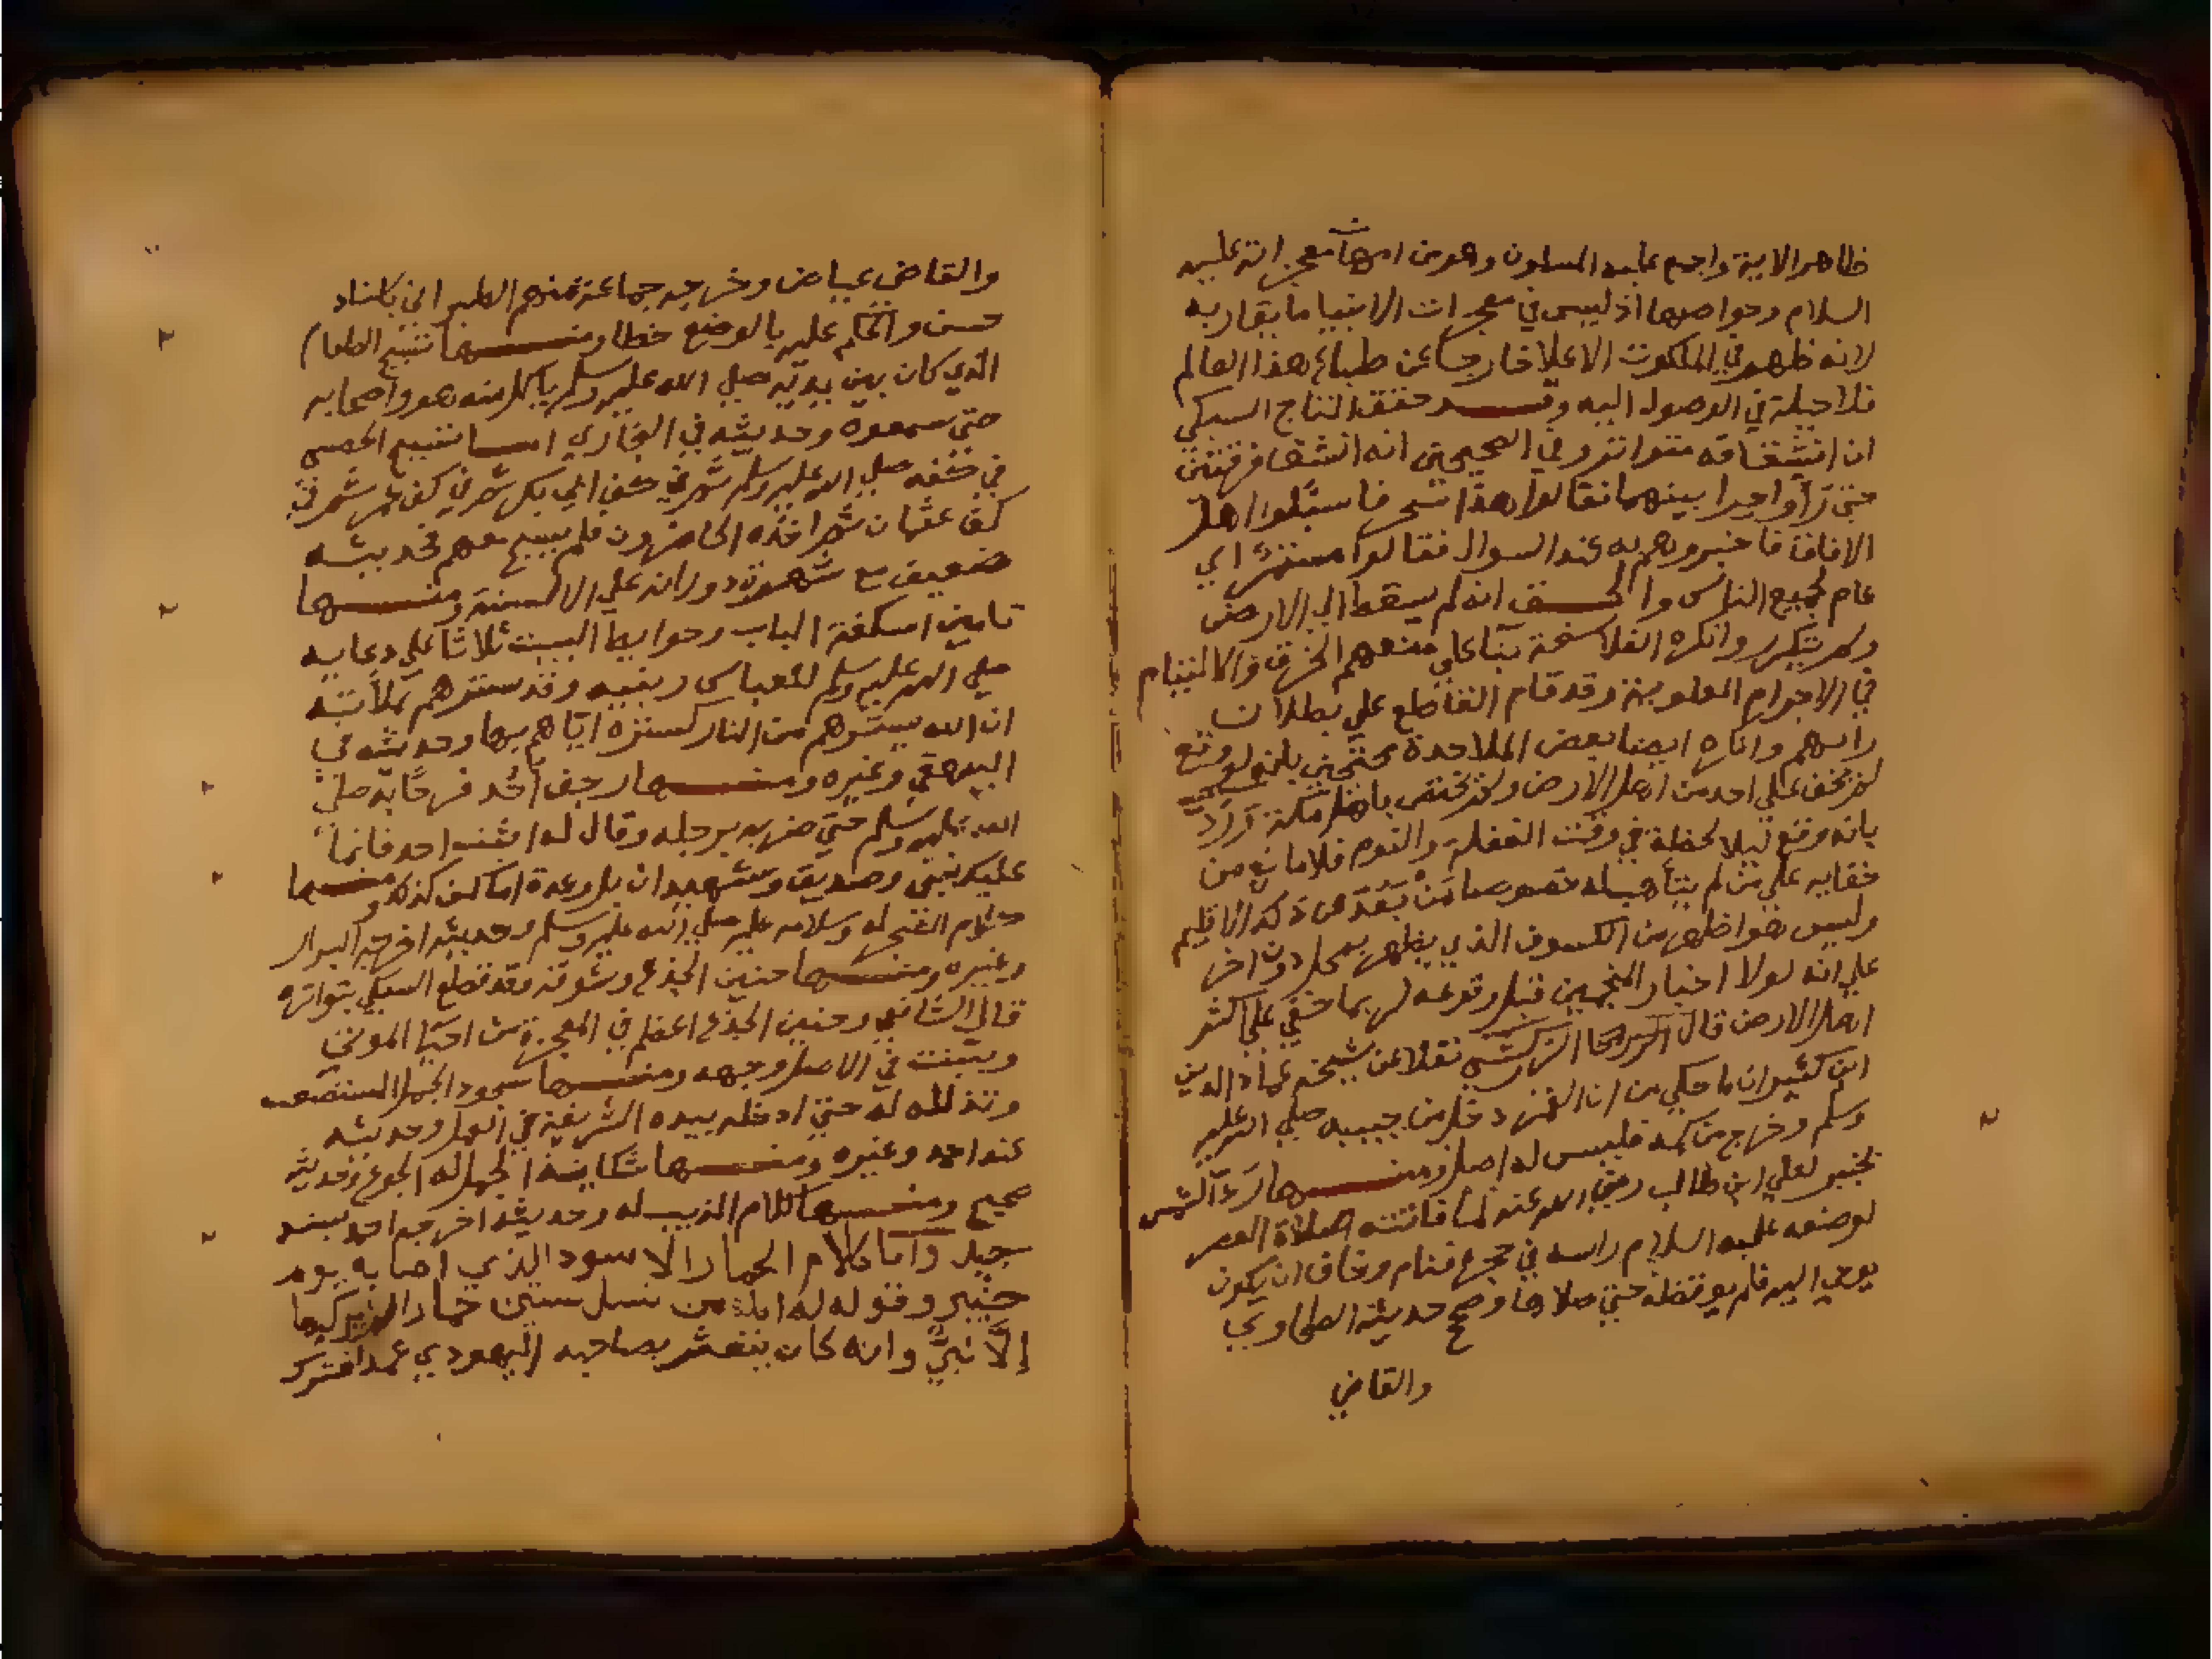 ظاهر الاية واجمع عليه المسلمون وهو من امهات معجزاته عليه
السلام وخواصها اذ ليس في معجزات الانبيا ما يقاربه
لانه ظهر في الملكوت الاعلا خارجا عن طباع هذا العالم
فلا حيلة في الوصول اليه وقد حقق التاج السبكي
ان انشقاقه متواتر وفي الصحيحين انه انشق فرقتين
حتي رأوا حرا بينهما فقالوا هذا سحر فاسئلوا اهل
الافاق فاخبروهم به عند السوال فقالوا مستمر اي
عام لجميع الناس والحق انه لم يسقط الي الارض
ولم يتكرر وانكره الفلاسفة بنآ علي منعهم الخرق والالتيام
في الاجرام العلوية وقد قام القاطع علي بطلان
رايهم وانكره ايضا بعض الملاحدة محتجين بانه لو وقع
لم يخف علي احد من اهل الارض ولم يختص باهل مكة ورد
بانه وقع ليلا لحظة في وقت الغفلة والنوم فلا مانع من
خفايه علي من لم يتأهب له خصوصا من بعد عن ذلك الاقليم
وليس هو اظهر من الكسوف الذي يظهر بمحل دون اخر
علي انه لولا اخبار المنجمين قبل وقوعه لربما خفي علي اكثر
اهل الارض قال الزركشي نقلا عن شيخه عماد الدين
ابن كثير ان ما حكي من ان القمر دخل من جيبه صلي الله عليه
وسلم وخرج من كمه فليس له اصل ومنها رد الشمس
بخيبر لعلي ابن طالب رضي الله عنه لما فاتته صلاة العصر
لوضعه عليه السلام راسه في حجره فنام وخاف ان يكون
يوحي اليه فلم يوقظه حتي صلاها وصح حديثه الطحاوي
والقاضي
والقاضي عياض وخرجه جماعة منهم الطبراني باسناد
حسن والحكم عليه بالوضع خطا ومنها تسبيح الطعام
الذي كان بين يديه صلي الله عليه وسلم ياكل منه هو واصحابه
حتي سمعوه وحديثه في البخاري اما تسبيح الحصي
في كفه صلي الله عليه وسلم ثم في كف ابي بكر ثم في كف عمر ثم في
كف عثمان ثم اخذه الحاضرون فلم يسبح معهم فحديثه
ضعيف مع شهرة دورانه علي الالسنة ومنها
تامين اسكفة الباب وحوايط البيت ثلاثا علي دعايه
صلي الله عليه وسلم للعباس وبنيه وقد سترهم بملأته
ان الله يسترهم من النار كستره اياهم بها وحديثه في
البيهقي وغيره ومنها رجف أُحُد فرحًا به صلي
الله عليه وسلم حتي ضربه برجله وقال له اثبت احد فانما
عليك نبي وصديق وشهيدان بل وعدة اماكن كذلك ومنها
كلام الشجر له وسلامه عليه صلي الله عليه وسلم وحديثه اخرجه البزار
وغيره ومنها حنين الجذع وشوقه فقد قطع السبكي بتواتره
قال الشافعي وحنين الجذع اعظم في المعجزة من احيا الموتي
وبينت في الاصل وجهه ومنها سجود الجمل المستصعب
وتذلله له حتي ادخله بيده الشريفة في العمل وحديثه
عند احمد وغيره ومنها شكاية الجمل له الجوع وحديثه
صحيح ومنها كلام الذيب له وحديثه اخرجه احمد بسند
جيد واما كلام الحمار الاسود الذي اصابه يوم
خيبر وقوله له انه من نسل ستين حمارا لم يركبها
إلَّا نَبِيٌّ وانه كان يتعثر بصاحبه اليهودي عمدا فتركه